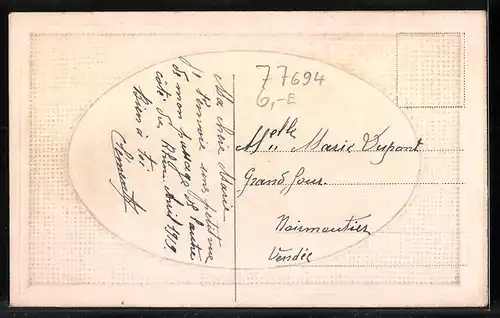 77694
6,-E
Ma chère Marie
J'envoie une petite vue
de mon passage de l'autre
côté du Rhin Avril 1919
bien à toi
Clément
Melle Marie Dupont
Grand'Four
Noirmoutier
Vendée